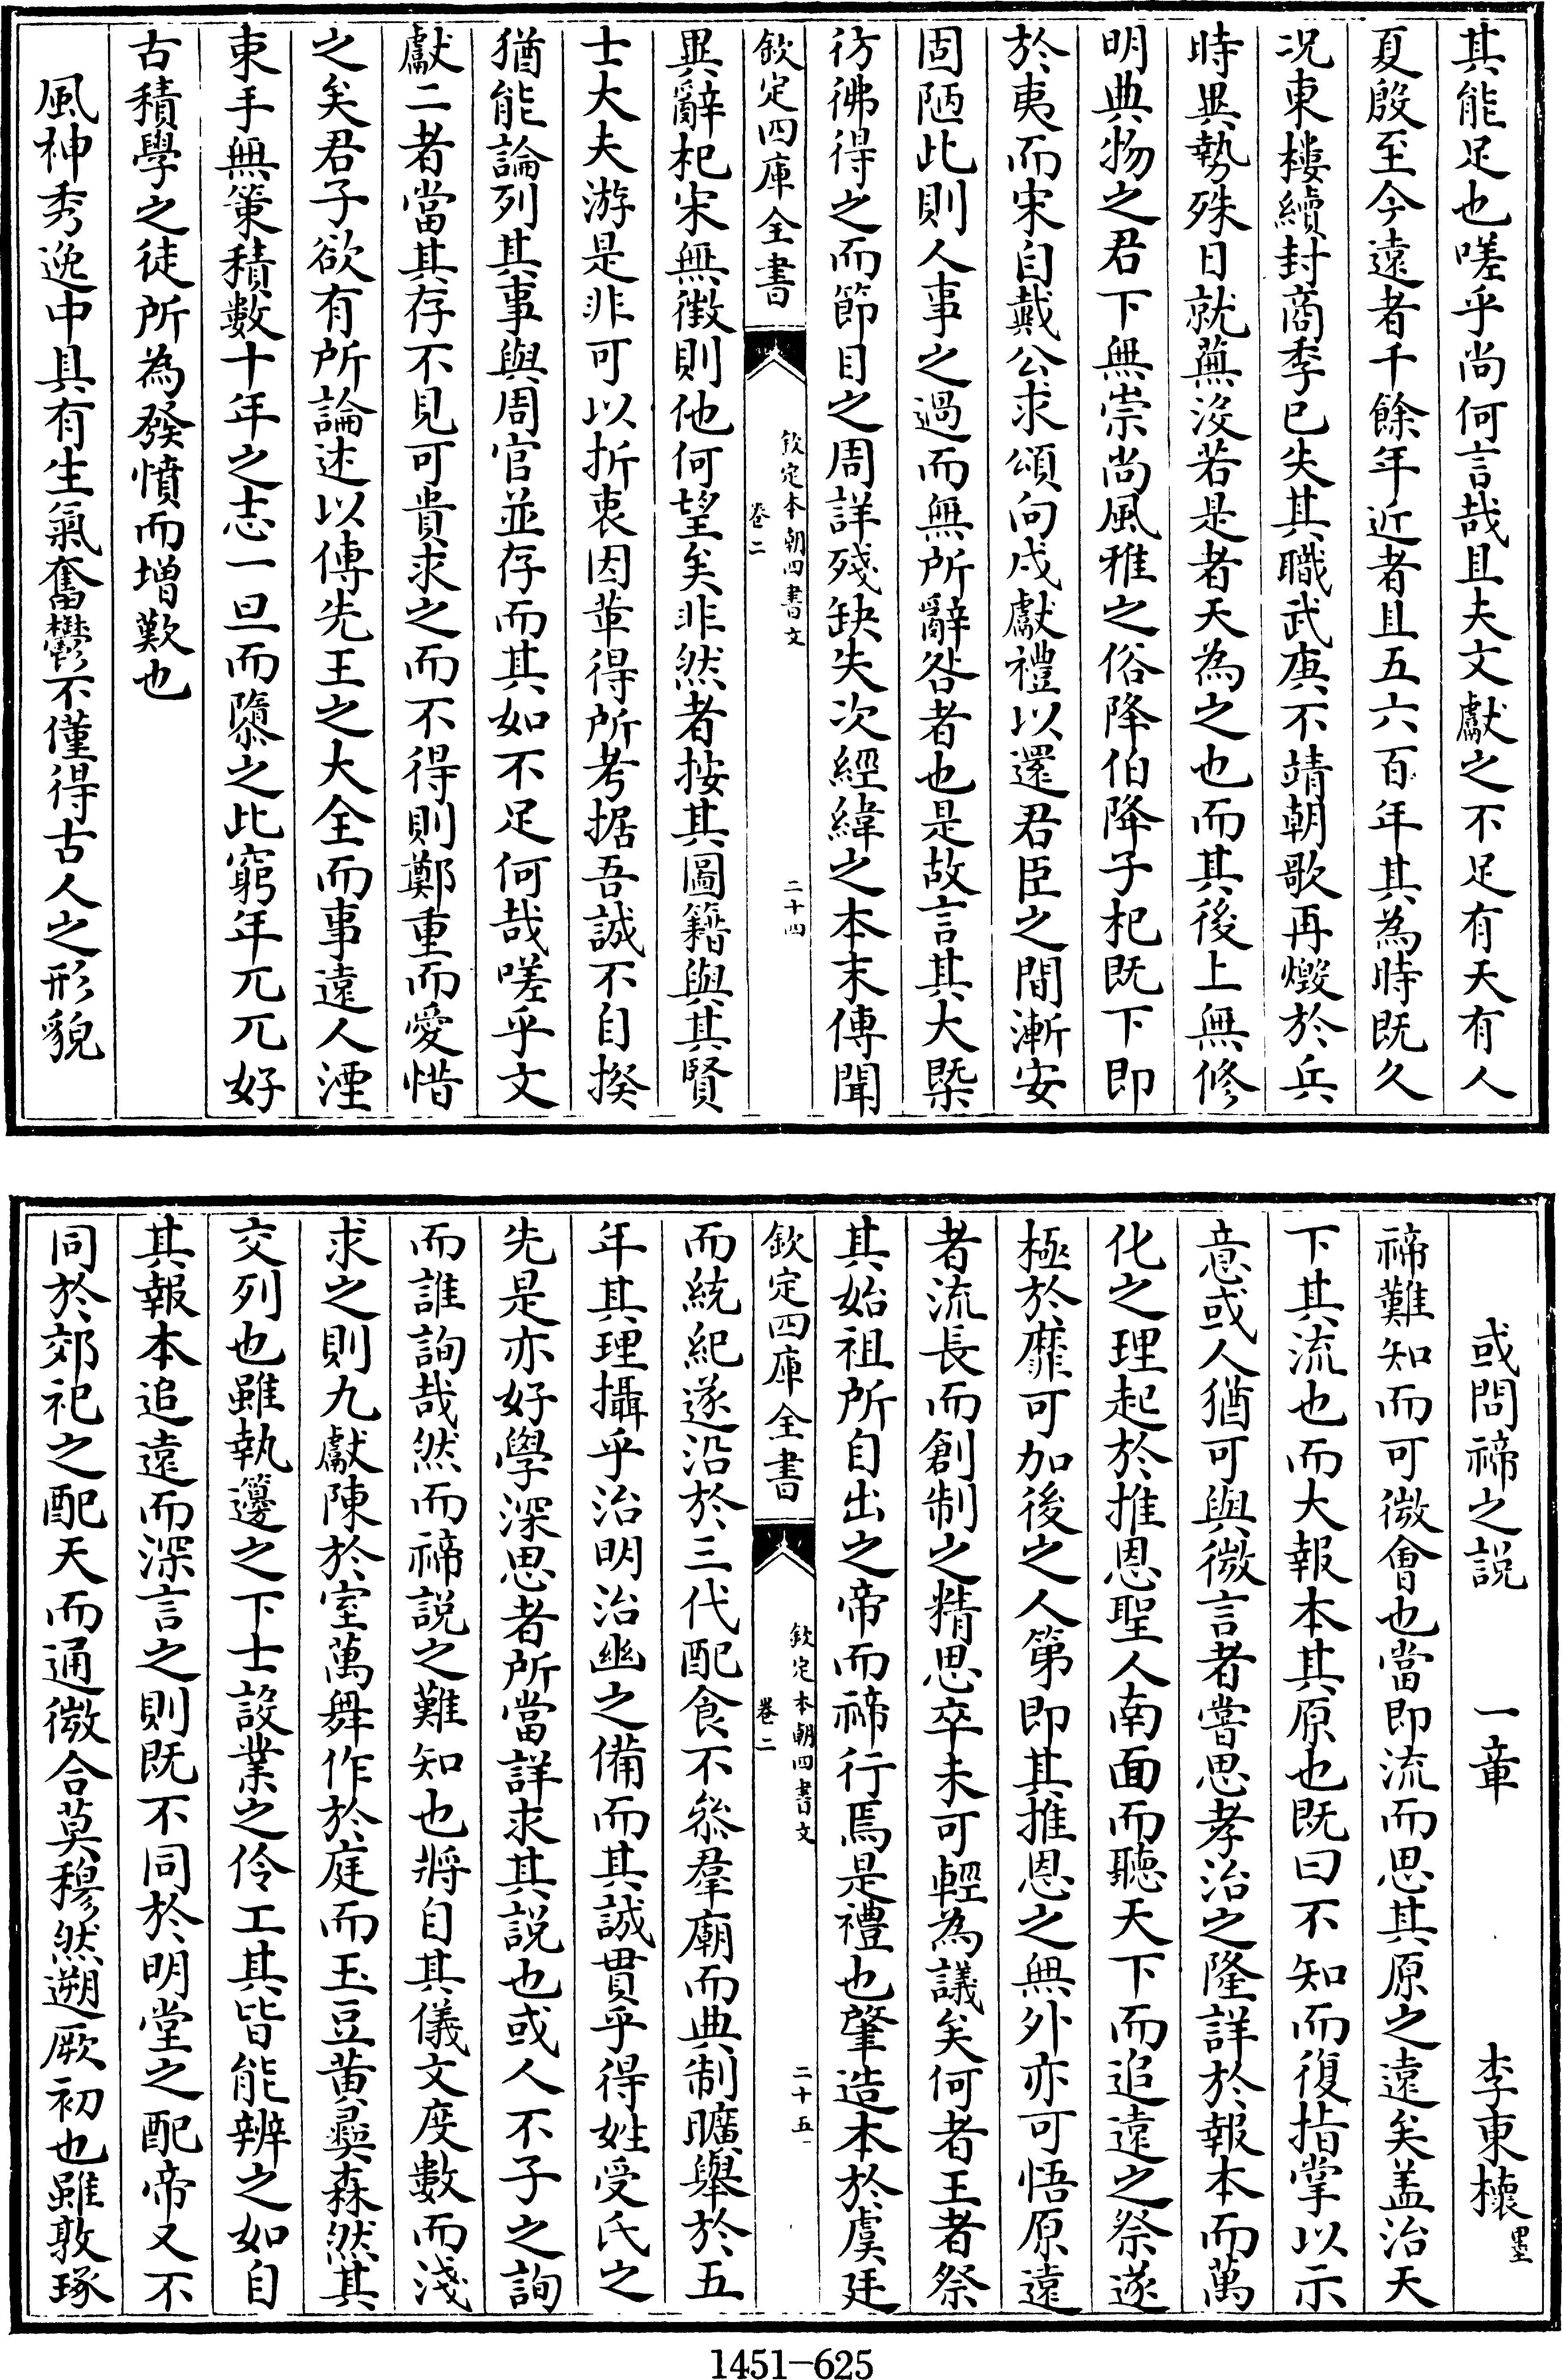 其能足也嗟乎尚何言哉且夫文獻之不足有天有人
夏殷至今遠者千餘年近者且五六百年其為時既久
况東樓續封商季已失其職武庚不靖朝歌再燬於兵
時異勢殊日就蕪沒若是者天為之也而其後上無修
明典物之君下無崇尚風雅之俗降伯降子杞既下即
於夷而宋自戴公求頌向戌獻禮以還君臣之間漸安
固陋此則人事之過而無所辭咎者也是故言其大槩
彷彿得之而節目之周詳殘缺失次經緯之本末傳聞
欽定四庫全書
欽定本朝四書文
卷二
二十四
異辭杞宋無徴則他何望矣非然者按其圖籍與其賢
士大夫游是非可以折衷因革得所考据吾誠不自揆
猶能論列其事與周官並存而其如不足何哉嗟乎文
獻二者當其存不見可貴求之而不得則鄭重而愛惜
之矣君子欲有所論述以傳先王之大全而事遠人湮
束手無策積數十年之志一旦而隳之此窮年兀兀好
古積學之徒所為發憤而增歎也
風神秀逸中具有生氣奮鬱不僅得古人之形貌
或問禘之説 一章 李東櫰墨
禘難知而可微會也當即流而思其原之遠矣盖治天
下其流也而大報本其原也既曰不知而復指掌以示
意或人猶可與微言者嘗思孝治之隆詳於報本而萬
化之理起於推恩聖人南面而聽天下而追遠之祭遂
極於靡可加後之人第即其推恩之無外亦可悟原遠
者流長而創制之精思卒未可輕為議矣何者王者祭
其始祖所自出之帝而禘行焉是禮也肇造本於虞廷
欽定四庫全書
欽定本朝四書文
卷二
二十五
而統紀遂沿於三代配食不叅羣廟而典制曠舉於五
年其理攝乎治明治幽之備而其誠貫乎得姓受氏之
先是亦好學深思者所當詳求其説也或人不子之詢
而誰詢哉然而禘説之難知也將自其儀文度數而淺
求之則九獻陳於室萬舞作於庭而玉豆黄彛森然其
交列也雖執籩之下士設業之伶工其皆能辨之如自
其報本追遠而深言之則既不同於明堂之配帝又不
同於郊祀之配天而通微合莫穆然遡厥初也雖敦琢
1451-625